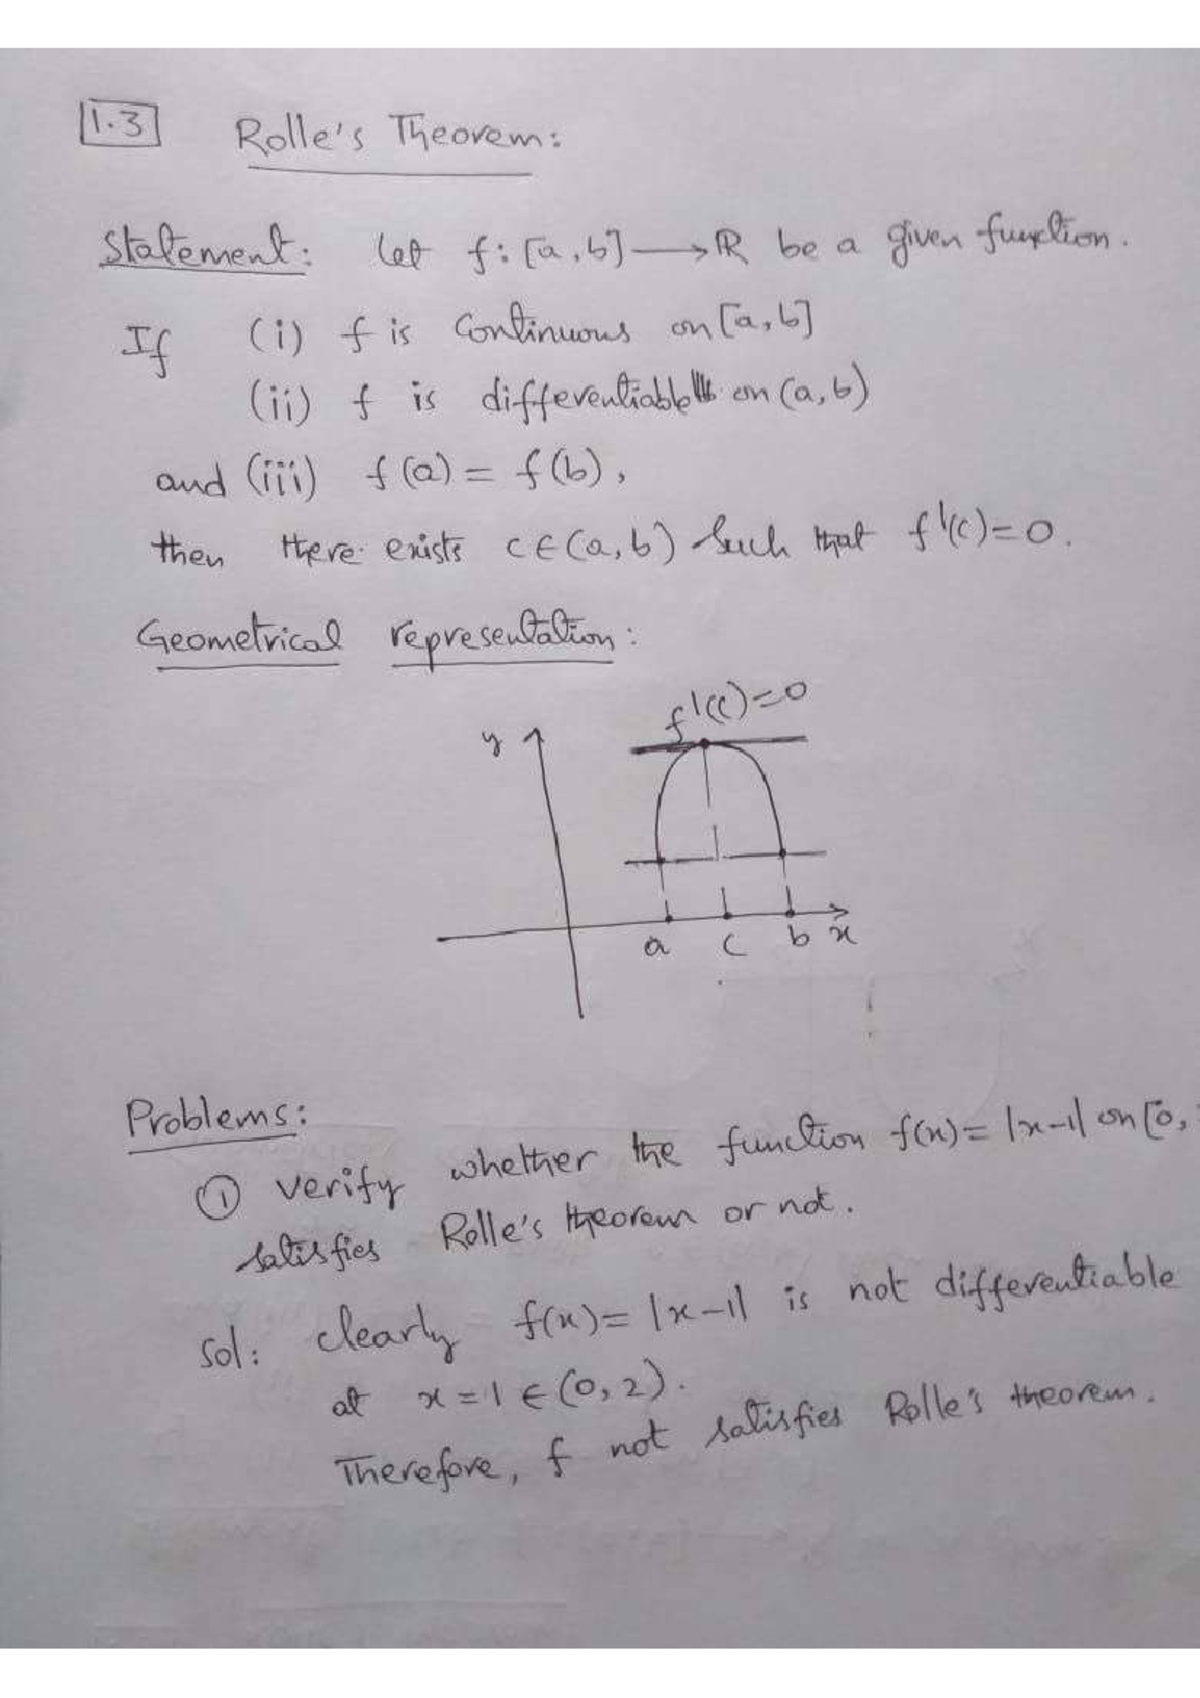 1.3 Rolle's Theorem:
Statement: Let f: [a, b] ⟶ ℝ be a given function.
If (i) f is continuous on [a, b]
(ii) f is differentiable on (a, b)
and (iii) f(a) = f(b),
then there exists c ∈ (a, b) such that f'(c) = 0.
Geometrical representation:
f'(c) = 0
y
a c b x
Problems:
① verify whether the function f(x) = |x-1| on [0,
satisfies Rolle's theorem or not.
Sol: clearly f(x) = |x-1| is not differentiable
at x = 1 ∈ (0, 2).
Therefore, f not satisfies Rolle's theorem.